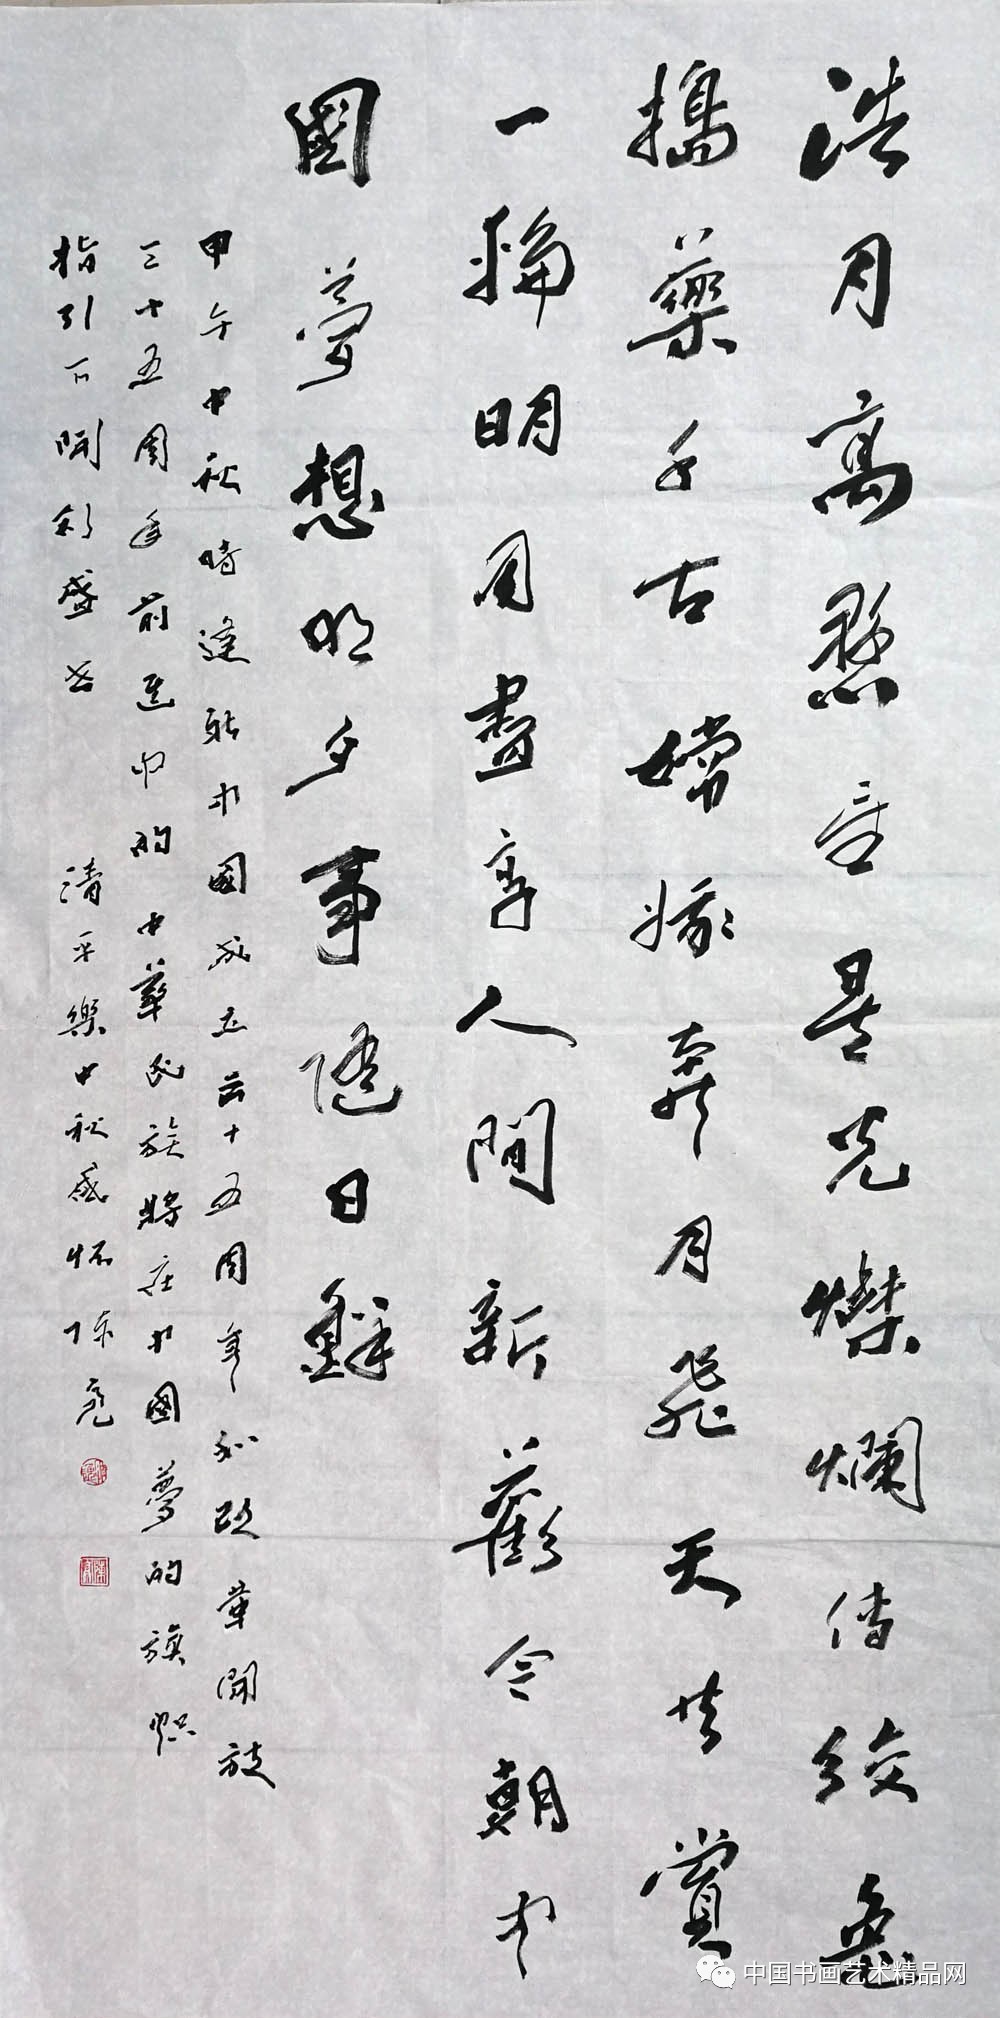 浩月高懸碧星光燦爛傳絞兔
搗藥千古嫦娥奔月飛天共賞
一輪明月盡享人間新舊今朝中
國夢想明夕事隨日鮮
甲午中秋時逢新中國成立六十五周年和改革開放
三十五周年前進中的中華民族將在中國夢的旗幟
指引下開創盛世 清平樂中秋感懷 陳亮
中国书画艺术精品网